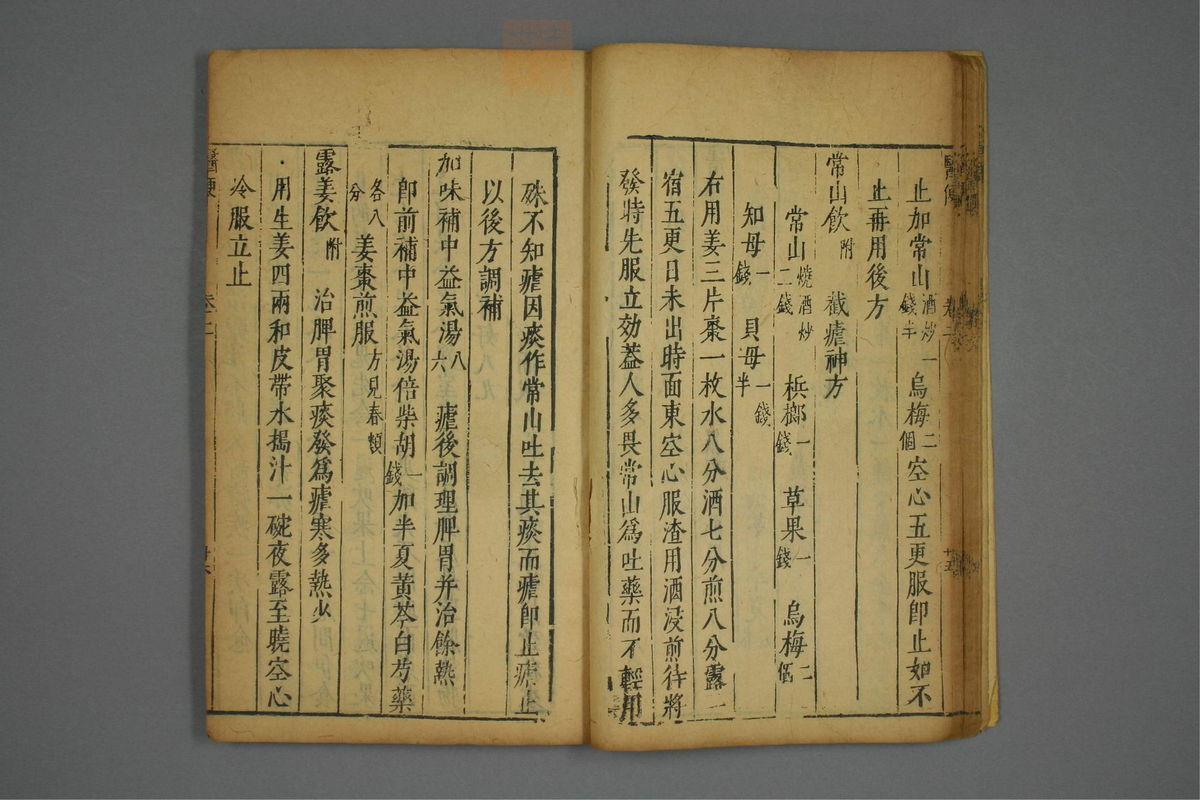 止加常山酒炒一錢半烏梅二個空心五更服即止如不
止再用後方
常山飲附 截瘧神方
常山燒酒炒二錢 梹榔一錢 草果一錢 烏梅二個
知母一錢 貝母一錢半
右用姜三片棗一枚水八分酒七分煎八分露一
宿五更日未出時面東空心服渣用酒浸煎待將
發時先服立効蓋人多畏常山爲吐藥而不輕用
殊不知瘧因痰作常山吐去其痰而瘧即止瘧止
以後方調補
加味補中益氣湯八六 瘧後調理脾胃并治餘熱
即前補中益氣湯倍柴胡一錢加半夏黃芩白芍藥
各八分 姜棗煎服方見春類
露姜飲附 治脾胃聚痰發爲瘧寒多熱少
用生姜四兩和皮帶水搗汁一碗夜露至曉空心
冷服立止
醫便 卷二